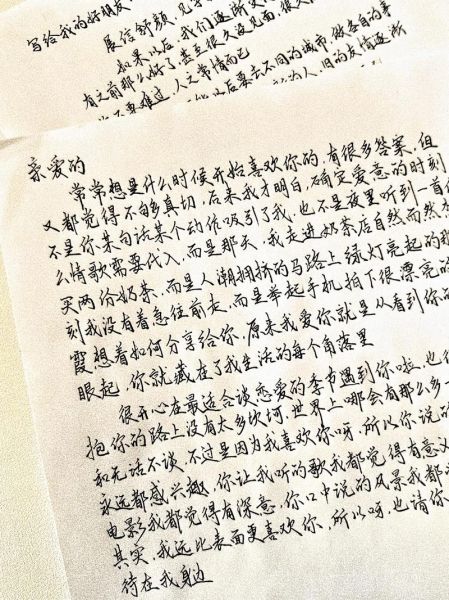 写给我的好朋友
展信舒颜，见字
如果以后我们逐渐
有之前那么好了甚至很久没见面，很久
不要难过，人之常情而已
以后要去不同的城市，做各自的事
人，旧的友情逐渐
亲爱的
常常想是什么时候开始喜欢你的，有很多答案，但
又都觉得不够真切，后来我才明白，确定爱意的时刻
不是你某句话某个动作吸引了我，也不是夜里听到一首
么情歌需要代入，而是那天，我走进奶茶店自然而然
买两份奶茶，而是人潮拥挤的马路上绿灯亮起的那
刻我没有着急往前走，而是举起手机拍下很漂亮的
霞想着如何分享给你，原来我爱你就是从看到你的
眼起，你就藏在了我生活的每个角落里
很开心在最适合谈恋爱的季节遇到你啦，也很
抱你的路上没有太多坎坷，世界上哪会有那么多一
和无话不谈，不过是因为我喜欢你呀，所以你说的
永远都感兴趣，你让我听的歌我都觉得有意义
电影我都觉得有深意，你口中说的风景我都
其实，我远比表面更喜欢你，所以呀，也请你
待在我身边